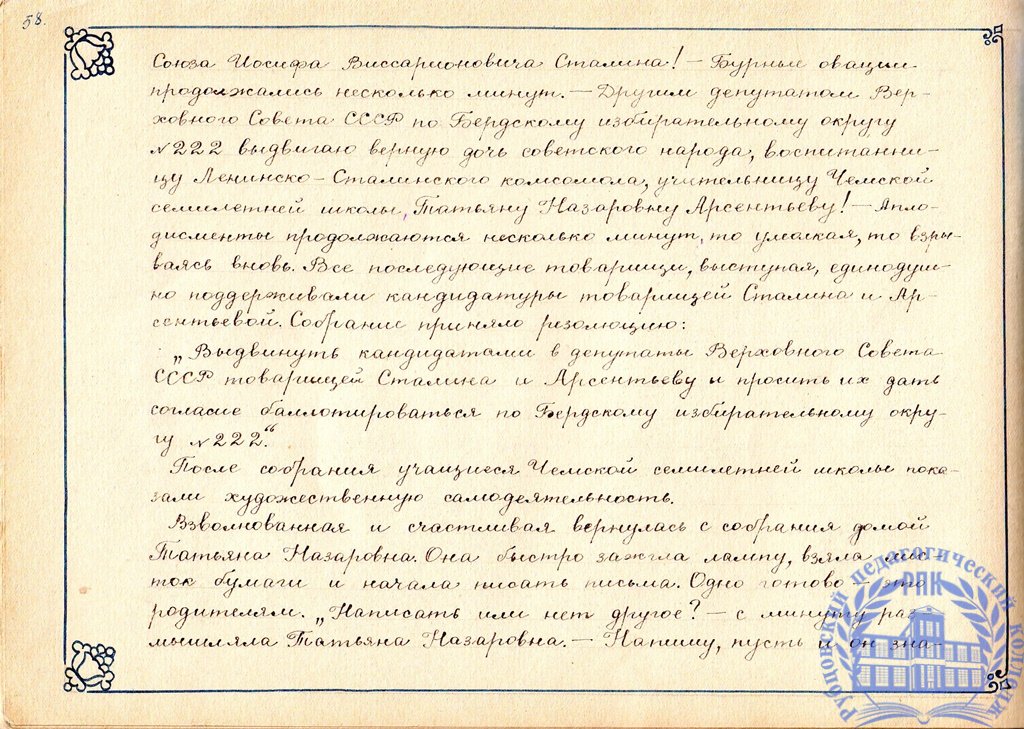 58.
Союза Иосифа Виссарионовича Сталина! – Бурные овации
продолжались несколько минут. – Другим депутатом Вер-
ховного Совета СССР по Бердскому избирательному округу
№ 222 выдвигаю верную дочь советского народа, воспитанни-
цу Ленинско-Сталинского комсомола, учительницу Чемской
семилетней школы, Татьяну Назаровну Арсентьеву! – Апло-
дисменты продолжаются несколько минут, то умолкая, то взры-
ваясь вновь. Все последующие товарищи, выступая, единодуш-
но поддерживали кандидатуры товарищей Сталина и Ар-
сентьевой. Собрание приняло резолюцию:
„Выдвинуть кандидатами в депутаты Верховного Совета
СССР товарищей Сталина и Арсентьеву и просить их дать
согласие баллотироваться по Бердскому избирательному окру-
гу № 222“.
После собрания учащиеся Чемской семилетней школы пока-
зали художественную самодеятельность.
Взволнованная и счастливая вернулась с собрания домой
Татьяна Назаровна. Она быстро зажгла лампу, взяла лис-
ток бумаги и начала писать письма. Одно готово – это
родителям. „Написать или нет другое? – с минуту раз-
мышляла Татьяна Назаровна. – Напишу, пусть и он зна-
Рубцовский педагогический колледж
РПК